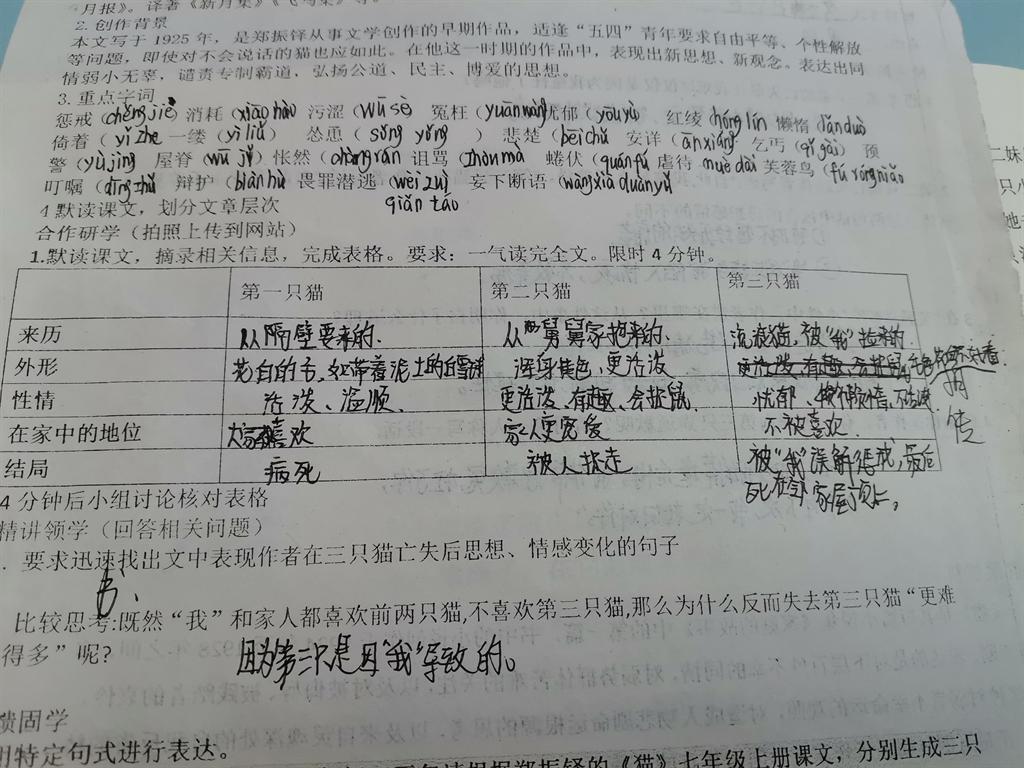 月报》。译著《新月集》《飞鸟集》等。
2. 创作背景
本文写于 1925 年，是郑振铎从事文学创作的早期作品，适逢“五四”青年要求自由平等、个性解放
等问题，即使对不会说话的猫也应如此。在他这一时期的作品中，表现出新思想、新观念。表达出同
情弱小无辜，谴责专制霸道，弘扬公道、民主、博爱的思想。
3. 重点字词
惩戒（chéng jiè 消耗（xiāo hào 污涩（wū sè） 冤枉（yuān wǎng 忧郁（yōu yù 红绫 hóng lín 懒惰 lǎn duò
倚着（yǐ zhe 一缕（yì liǔ） 怂恿（sǒng yǒng ） 悲楚（bēi chǔ 安详（ān xiáng 乞丐（qǐ gài） 预
警（yù jǐng 屋脊（wū jǐ 怅然（chàng rán 诅骂（zhou mà 蜷伏（quán fú 虐待 nuè dài 芙蓉鸟（fú róng niǎo
叮嘱（dīng zhǔ 辩护（biàn hù 畏罪潜逃（wèi zuì 妄下断语（wàng xià duàn yǔ
qián táo
4 默读课文，划分文章层次
合作研学（拍照上传到网站）
1.默读课文，摘录相关信息，完成表格。要求：一气读完全文。限时 4 分钟。
第一只猫 第二只猫 第三只猫
来历 从隔壁要来的. 从舅舅家抱来的. 流浪猫，被“我”捡来的.
外形 花白的毛，如带着泥土的白雪球 浑身黄色，更活泼 毛色花白，不好看.
性情 活泼、温顺. 更活泼、有趣、会捉鼠. 忧郁、懒惰、不活泼.
在家中的地位 大家都喜欢 家人更宠爱 不被喜欢.
结局 病死 被人捉走 被“我”误解惩戒，最后
死在邻家屋顶上。
4 分钟后小组讨论核对表格
精讲领学（回答相关问题）
. 要求迅速找出文中表现作者在三只猫亡失后思想、情感变化的句子
比较思考:既然“我”和家人都喜欢前两只猫,不喜欢第三只猫,那么为什么反而失去第三只猫“更难
得多”呢?
因为第三只是因“我”导致的。
馈固学
用特定句式进行表达。
郑振铎的《猫》七年级上册课文，分别生成三只